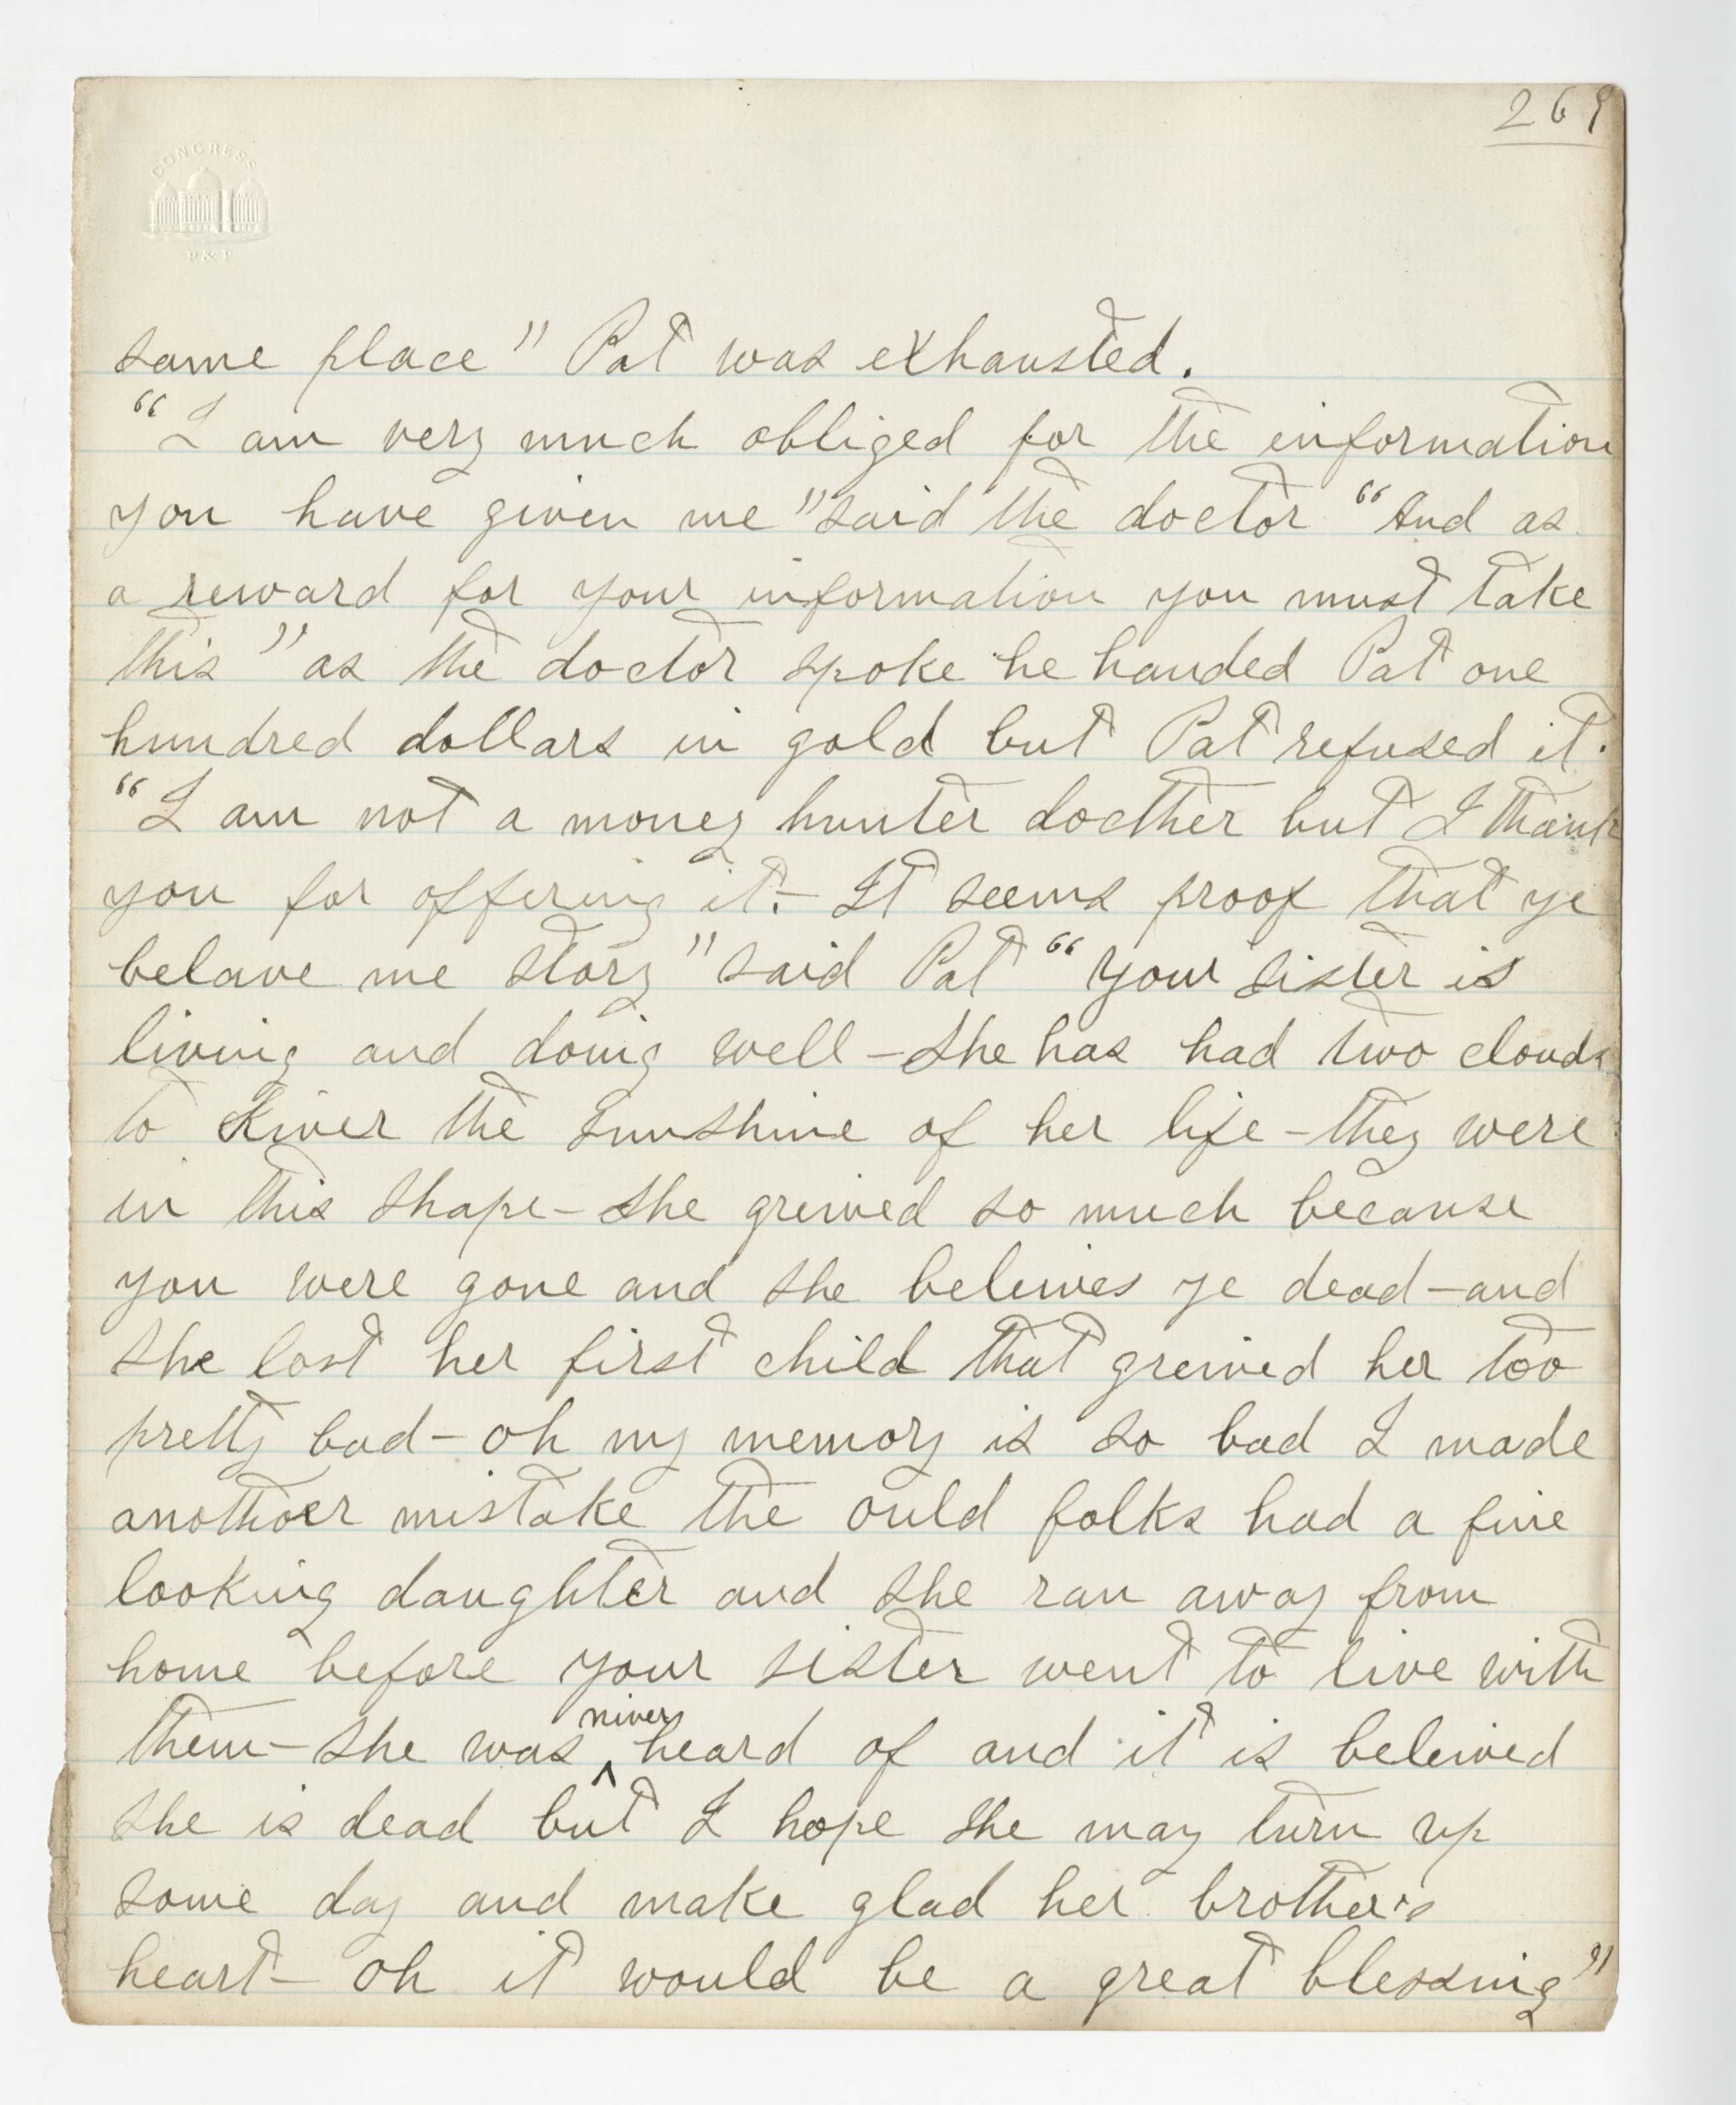 269
CONGRESS
P & P
same place" Pat was exhausted.
"I am very much obliged for the information
you have given me" said the doctor "And as
a reward for your information you must take
this" as the doctor spoke he handed Pat one
hundred dollars in gold but Pat refused it.
"I am not a money hunter docther but I thank
you for offering it.- It seems proof that ye
belave me story" said Pat "your sister is
living and doing well - she has had two clouds
to kiver the sunshine of her life - they were
in this shape - she greived so much because
you were gone and she beleives ye dead - and
she lost her first child that greived her too
pretty bad - oh my memory is so bad I made
another mistake the ould folks had a fine
looking daughter and she ran away from
home before your sister went to live with
them - she was ^niver heard of and it is beleived
she is dead but I hope she may turn up
some day and make glad her brother's
heart - oh it would be a great blessing"